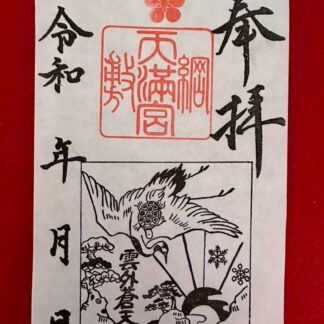 奉拝
綱敷
天満宮
雲外蒼天
令和 年 月 日